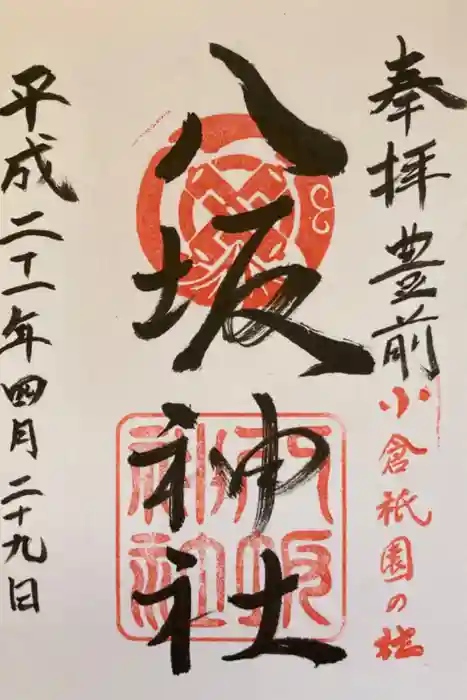 奉拝 豊前 小倉祇園の社
八坂神社
八坂神社
平成二十一年四月二十九日